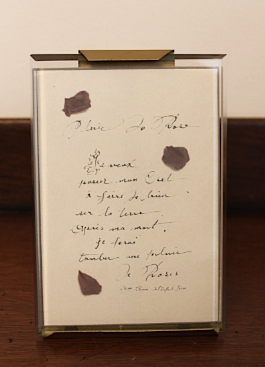 Pluie de Roses
Je veux
passer mon Ciel
à faire du bien
sur la terre.
Après ma mort,
je ferai
tomber une pluie
de Roses